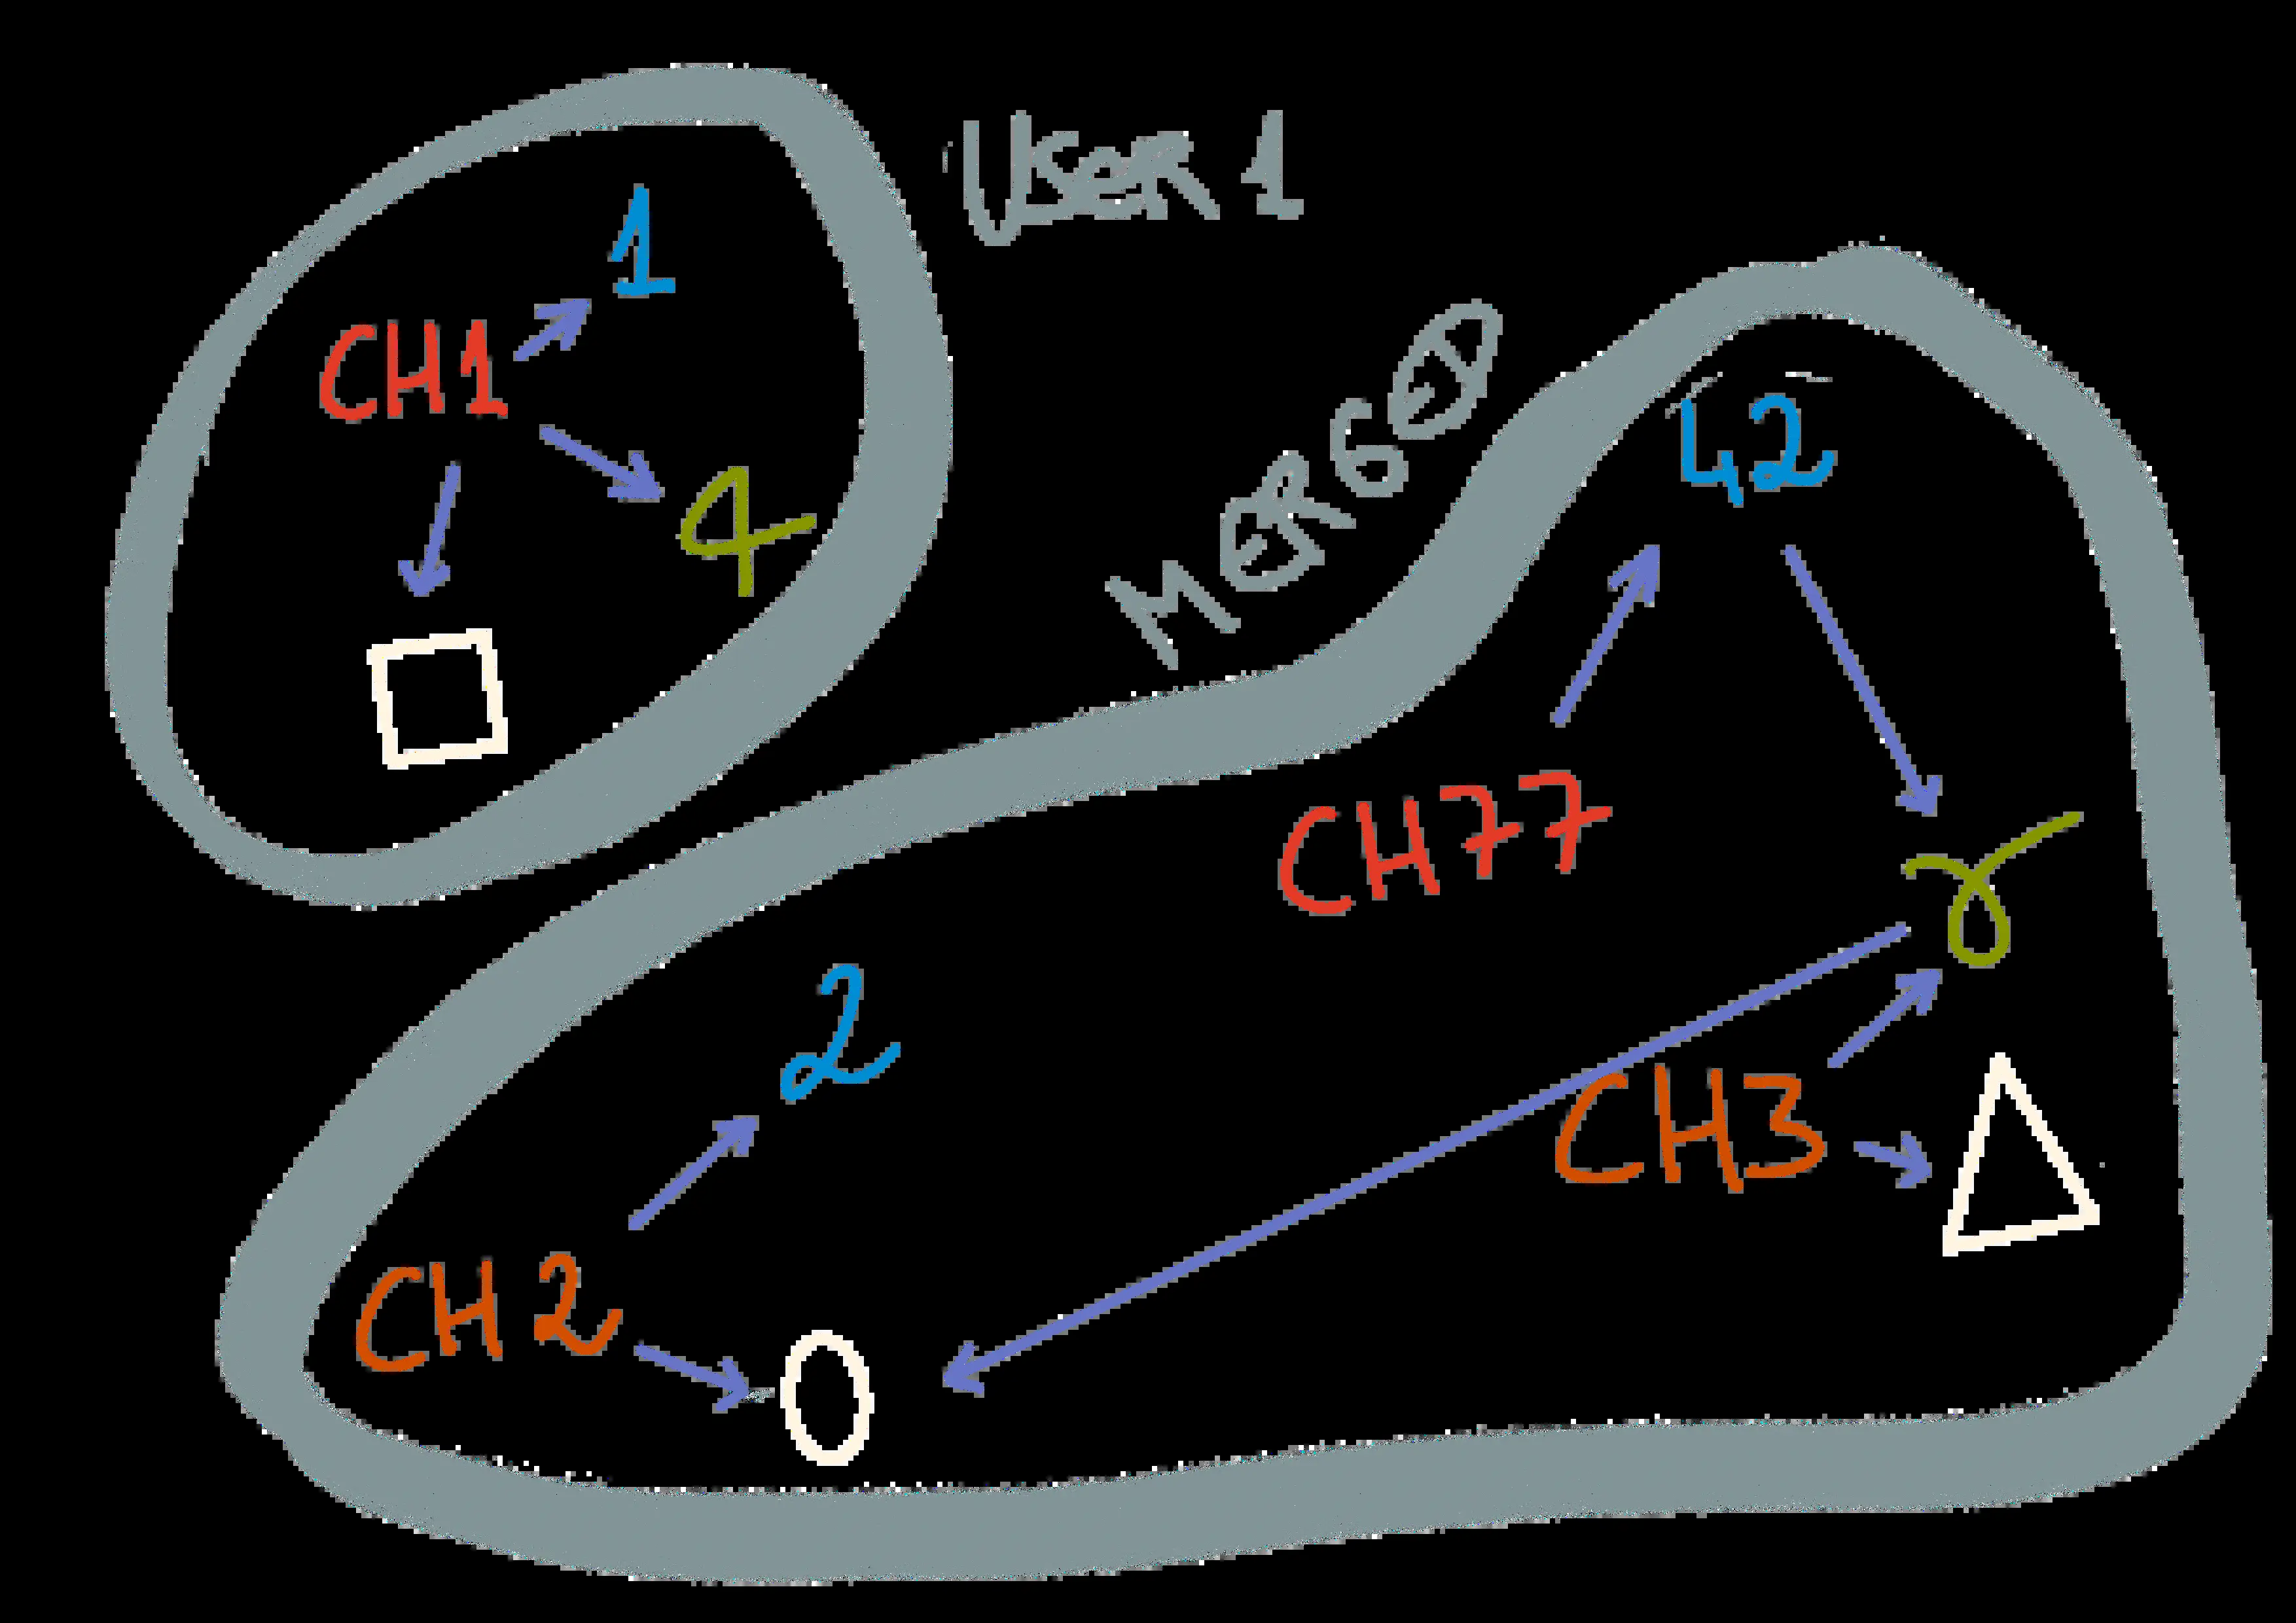 USER 1
1
CH1
4
MERGED
42
CH77
γ
2
CH3
CH2